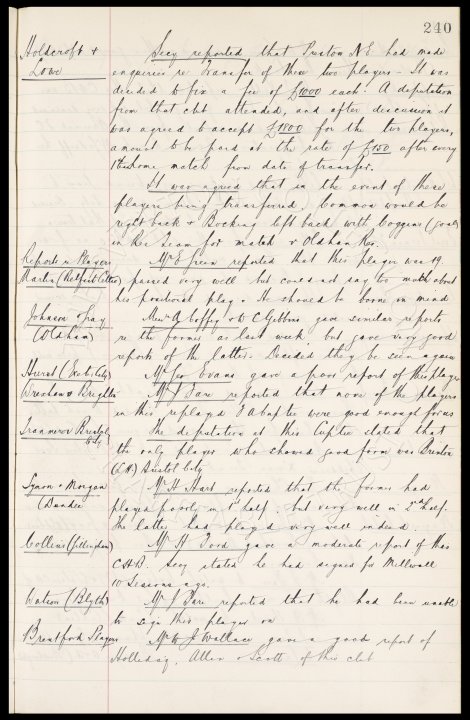 240
Holdcroft +
Lowe
Secy reported that Preston N.E. had made
enqueries re transfer of these two players - It was
decided to fix a fee of £1000 each. A deputation
from that club attended, and after discussion it
was agreed to accept £1800 for the two players,
amount to be paid at the rate of £150 after every
home match from date of transfer.
It was agreed that in the event of these
players being transferred, Common would be
right back + Bocking left back with Coggin (goal)
in Res Team for match v Oldham Res.
Reports re Players
Martin (Ratford
Mr E Green reported that this player was 19.
passed very well but could not say too much about
his positional play. It should be borne in mind
Johnson + Fay
(Oldham)
Messrs A Coffey + W C Gibbins gave similar reports
re the former as last week, but gave very good
reports of the latter. Decided they be seen again
Hurst (Ex b. City)
Mr Geo Evans gave a poor report of this player
Wrexham v Brighton
Mr J Fare reported that none of the players
in this replayed Cup tie were good enough for us
Tranmere v Bristol
City
The deputation at this Cuptie stated that
the only player who showed good form was
(C.H.) Bristol City
Symon + Morgan
(Dundee
Mr H Hart reported that the former had
played poorly in 1st half, but very well in 2nd half.
The latter had played very well indeed.
Collins (Gillingham)
Mr H gave a moderate report of this
C.H.B. Secy stated he had signed for Millwall
10 Seasons ago.
Watson (Blyth)
Mr J Fare reported that he had been unable
to sign this player on
Brentford Players
Mr W J Wallace gave a good report of
Holliday, Allen + Scott of this club